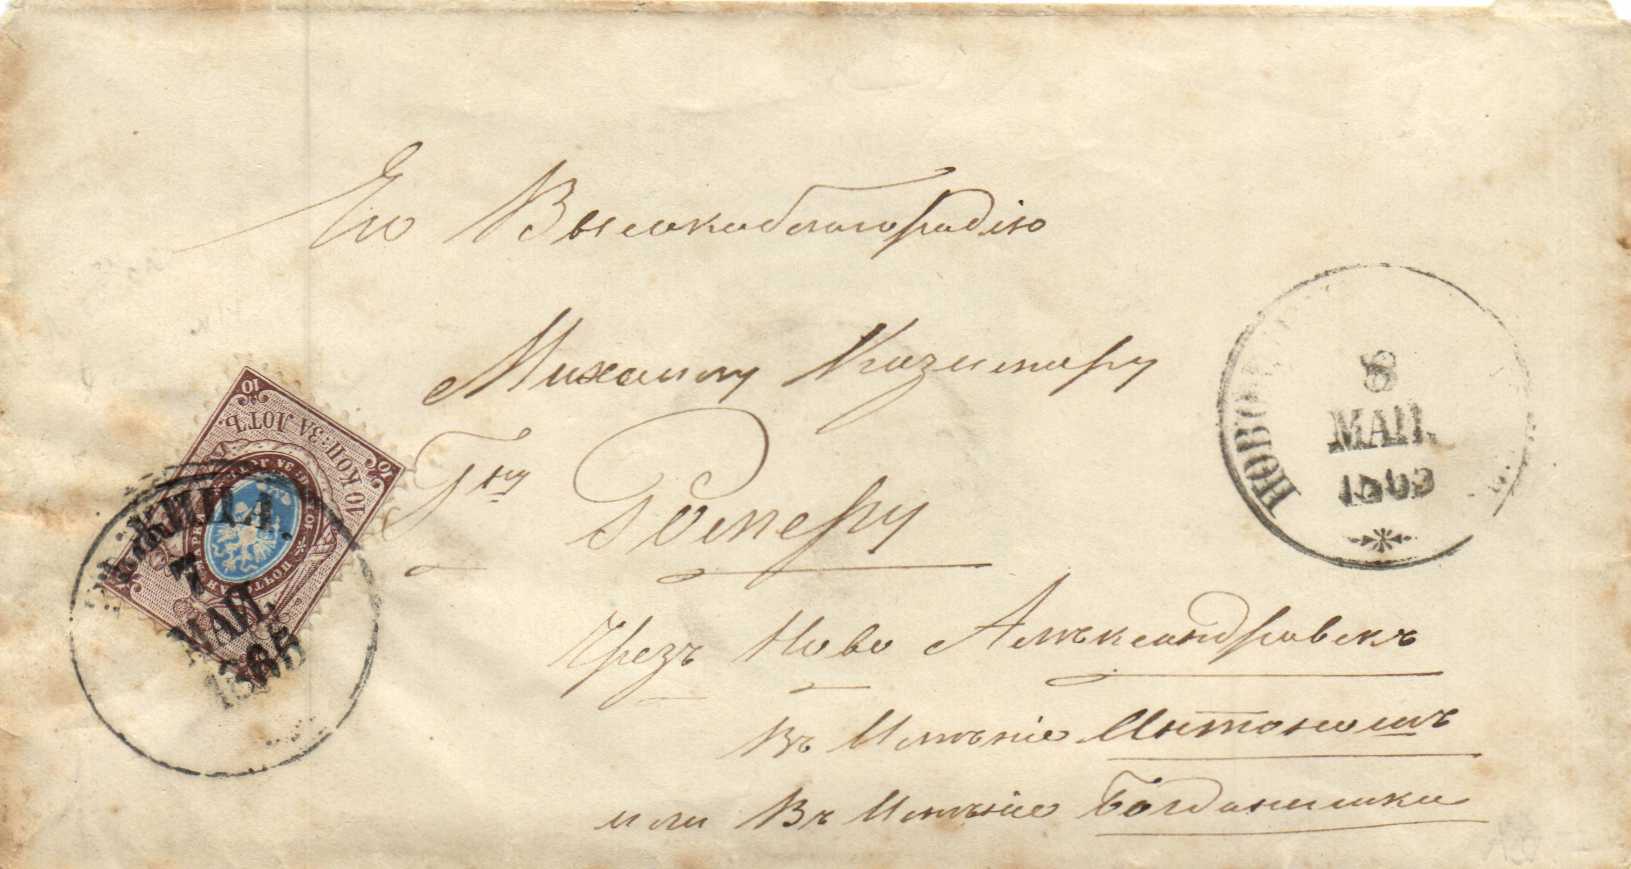 Его Высокоблагородію
Михаилу Казимиру
Гну Ромеру
Чрезъ Ново Алѣксандровскъ
въ Имѣніе Антоношъ
или Въ Имѣніе Богданишки
10 КОП: ЗА ЛОТЪ.
10
10
7
МАИ.
1865
8
МАІІ.